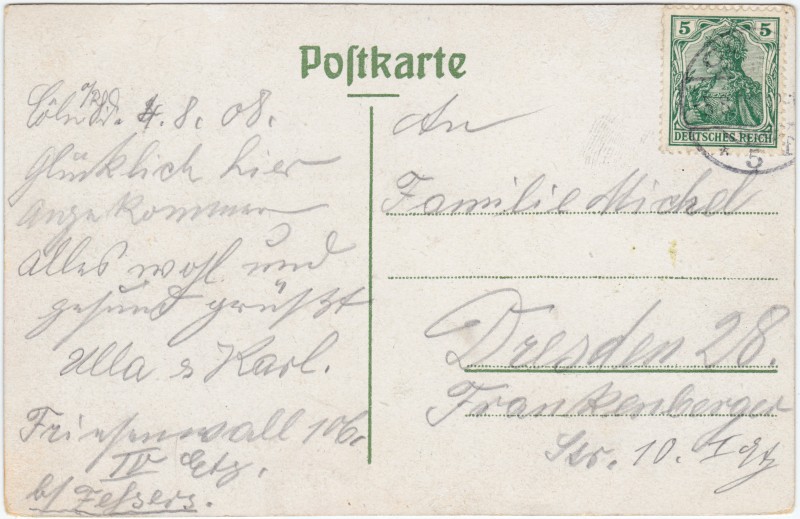 Postkarte
Cöln a/Rh. d. 4. 8. 08.
Glücklich hier
angekommen
alles wohl und
gesund grüßt
Ulla & Karl.
Friesenwall 106.
IV Etg.
b/
An
Familie Michel
Dresden 28.
Frankenberger
Str. 10. I Etg
5 5
DEUTSCHES REICH
* 5